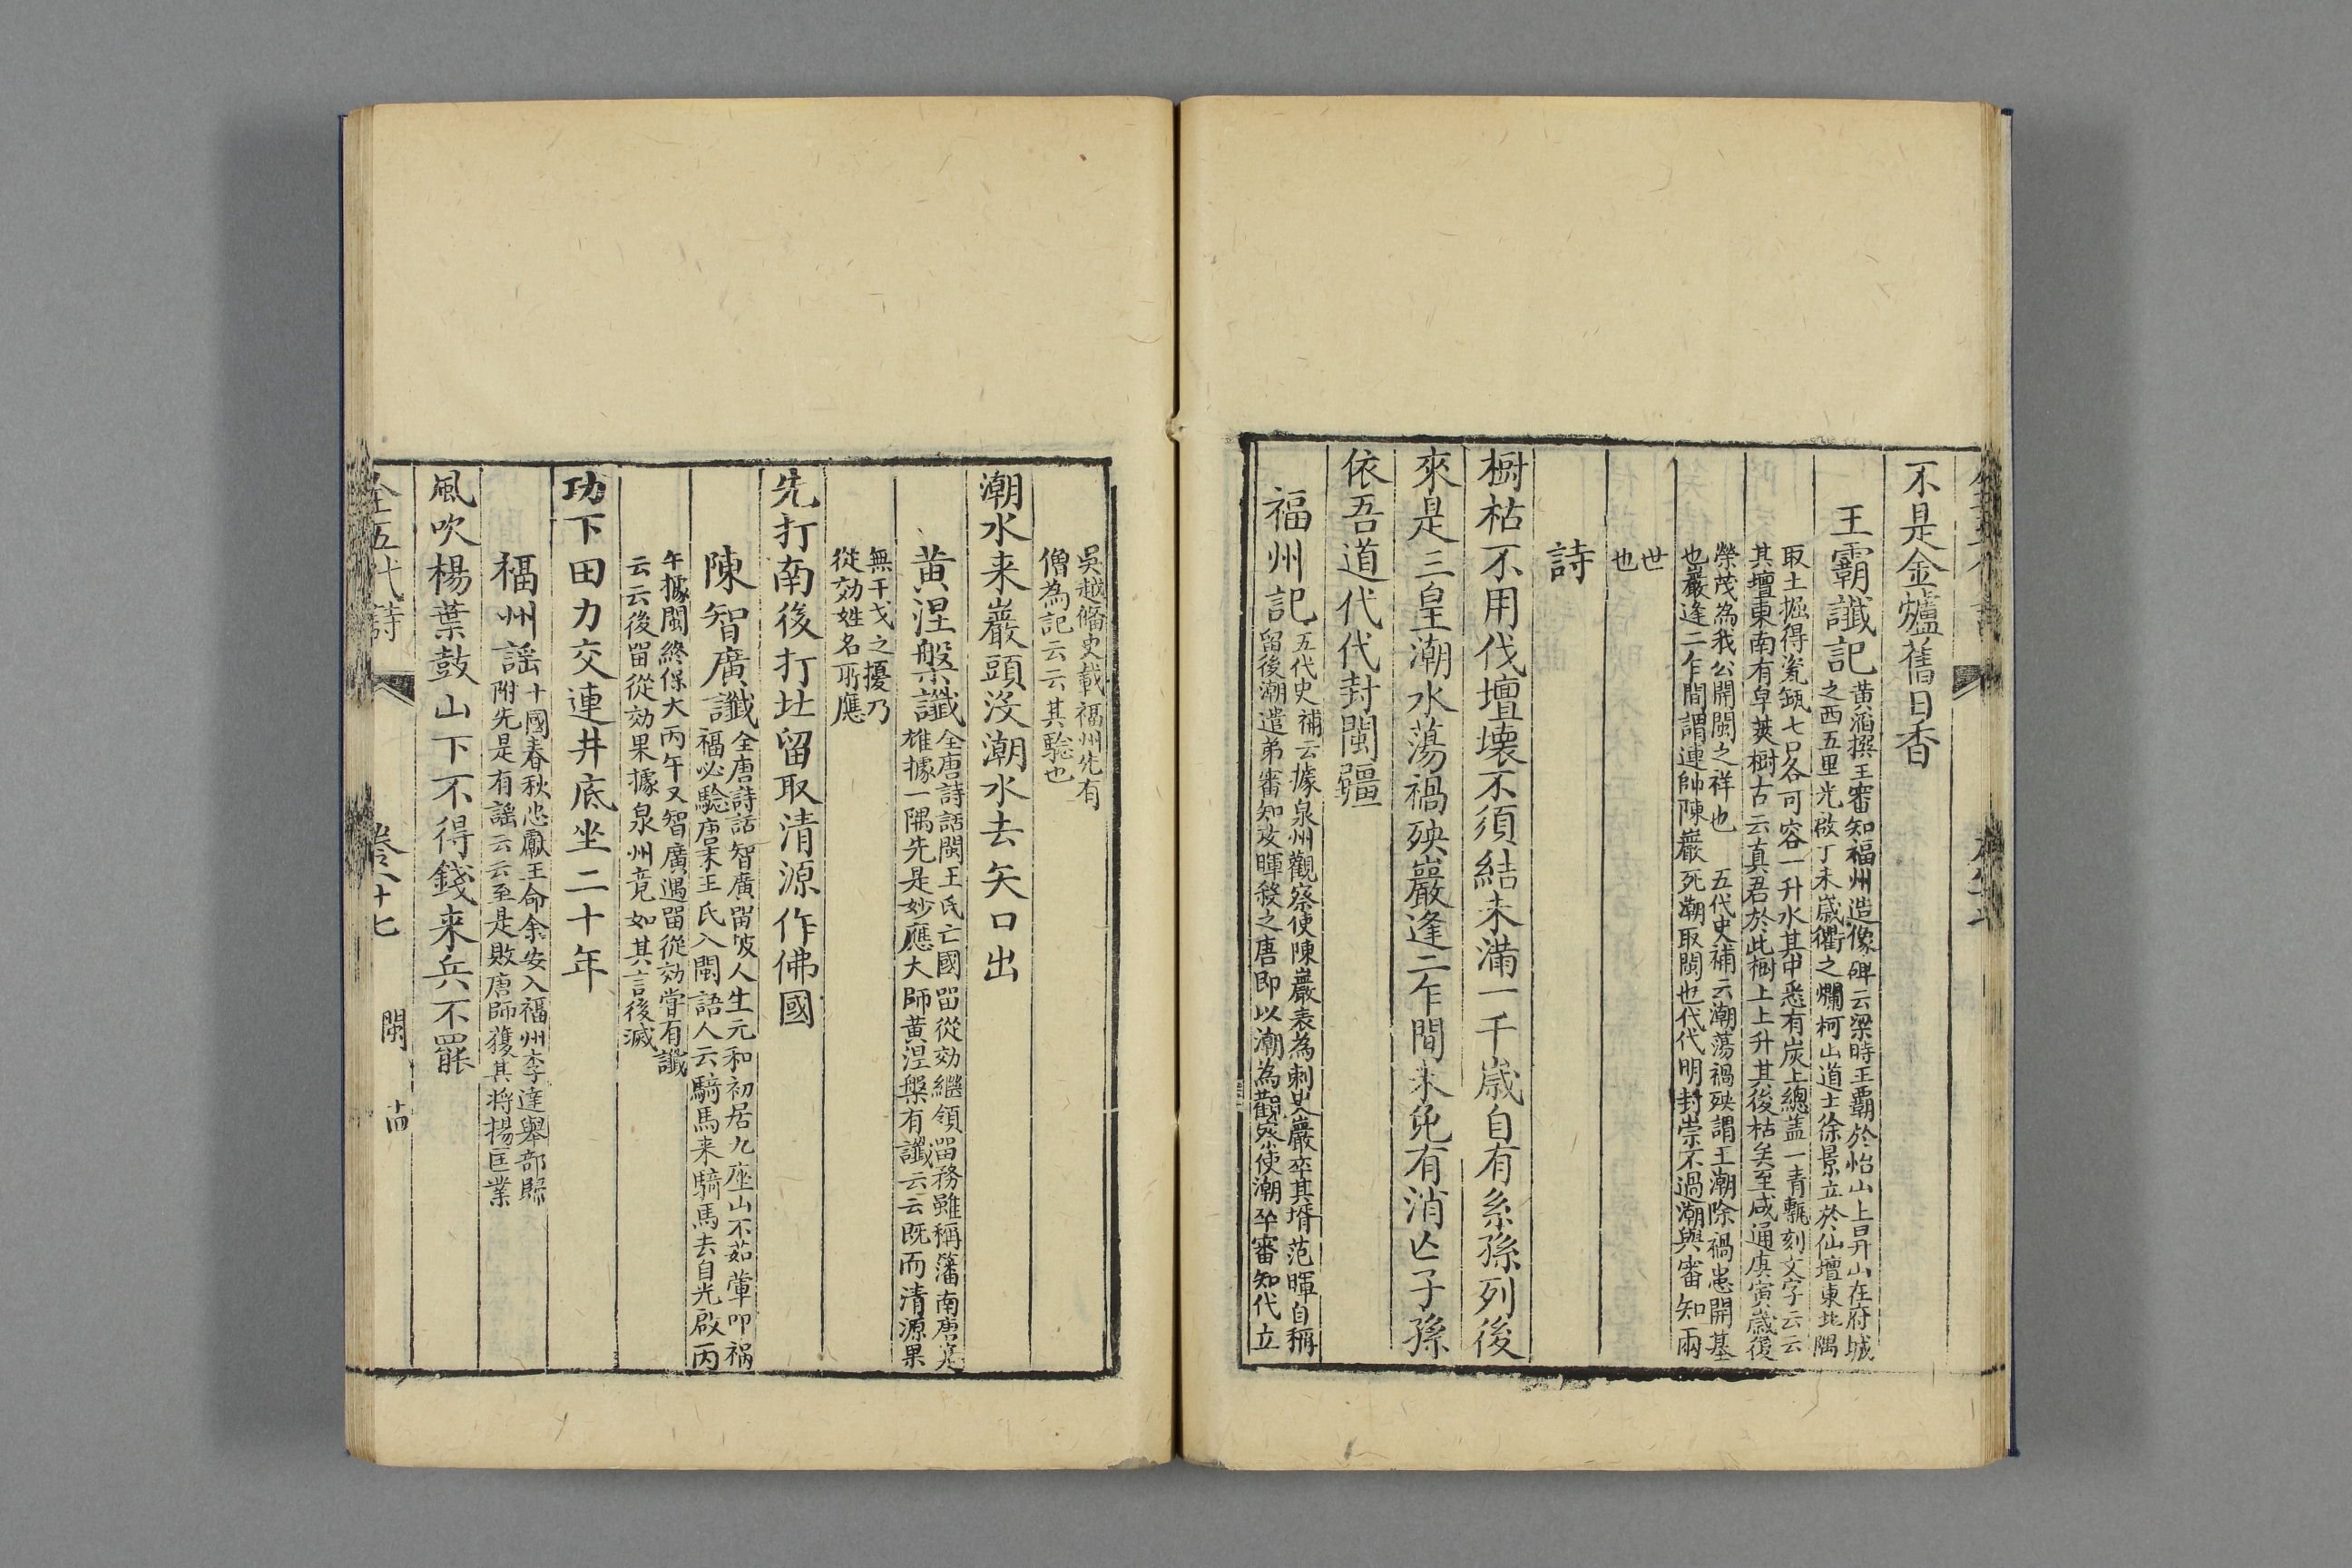 不是金爐舊日香
王霸讖記
黃滔撰王審知福州造像碑云梁時王霸於怡山上昇山在府城
之西五里光啟丁未歲衢之爛柯山道士徐景立於仙壇東北隅
取土掘得瓷缾七口各可容一升水其中悉有炭上總蓋一青甎刻文字云云
其壇東南有皁莢樹古云真君於此樹上上升其後枯矣至咸通庚寅歲後
榮茂為我公開閩之祥也 五代史補云潮蕩禍殃謂王潮除禍患開基
也巖逢二乍間謂連帥陳巖死潮取閩也代代明封崇不過潮與審知兩
世
也
詩
樹枯不用伐壇壊不須結未滿一千歲自有系孫列後
來是三皇潮水蕩禍殃巖逢二乍間未免有消亾子孫
依吾道代代封閩疆
福州記
五代史補云據泉州觀察使陳巖表為刺史巖卒其壻范暉自稱
留後潮遣弟審知攻暉殺之唐即以潮為觀察使潮卒審知代立
吳越備史載福州先有
僧為記云云其驗也
潮水来巖頭沒潮水去矢口出
黄涅槃讖
全唐詩話閩王氏亡國畱從効繼領畱務雖稱籓南唐寔
雄據一隅先是妙應大師黃涅槃有讖云云既而清源果
無干戈之擾乃
從効姓名所應
先打南後打北留取清源作佛國
陳智廣讖
全唐詩話智廣畱陂人生元和初居九座山不茹葷叩禍
福必驗唐末王氏入閩語人云騎馬来騎馬去自光啟丙
午據閩終保大丙午又智廣遇畱從効嘗有讖
云云後畱從効果據泉州竟如其言後滅
功下田力交連井底坐二十年
福州謡
十國春秋忠獻王命余安入福州李達舉部歸
附先是有謡云云至是敗唐師獲其将楊匡業
風吹楊葉鼓山下不得錢来兵不罷
全五代詩
卷八十七
閩
十四